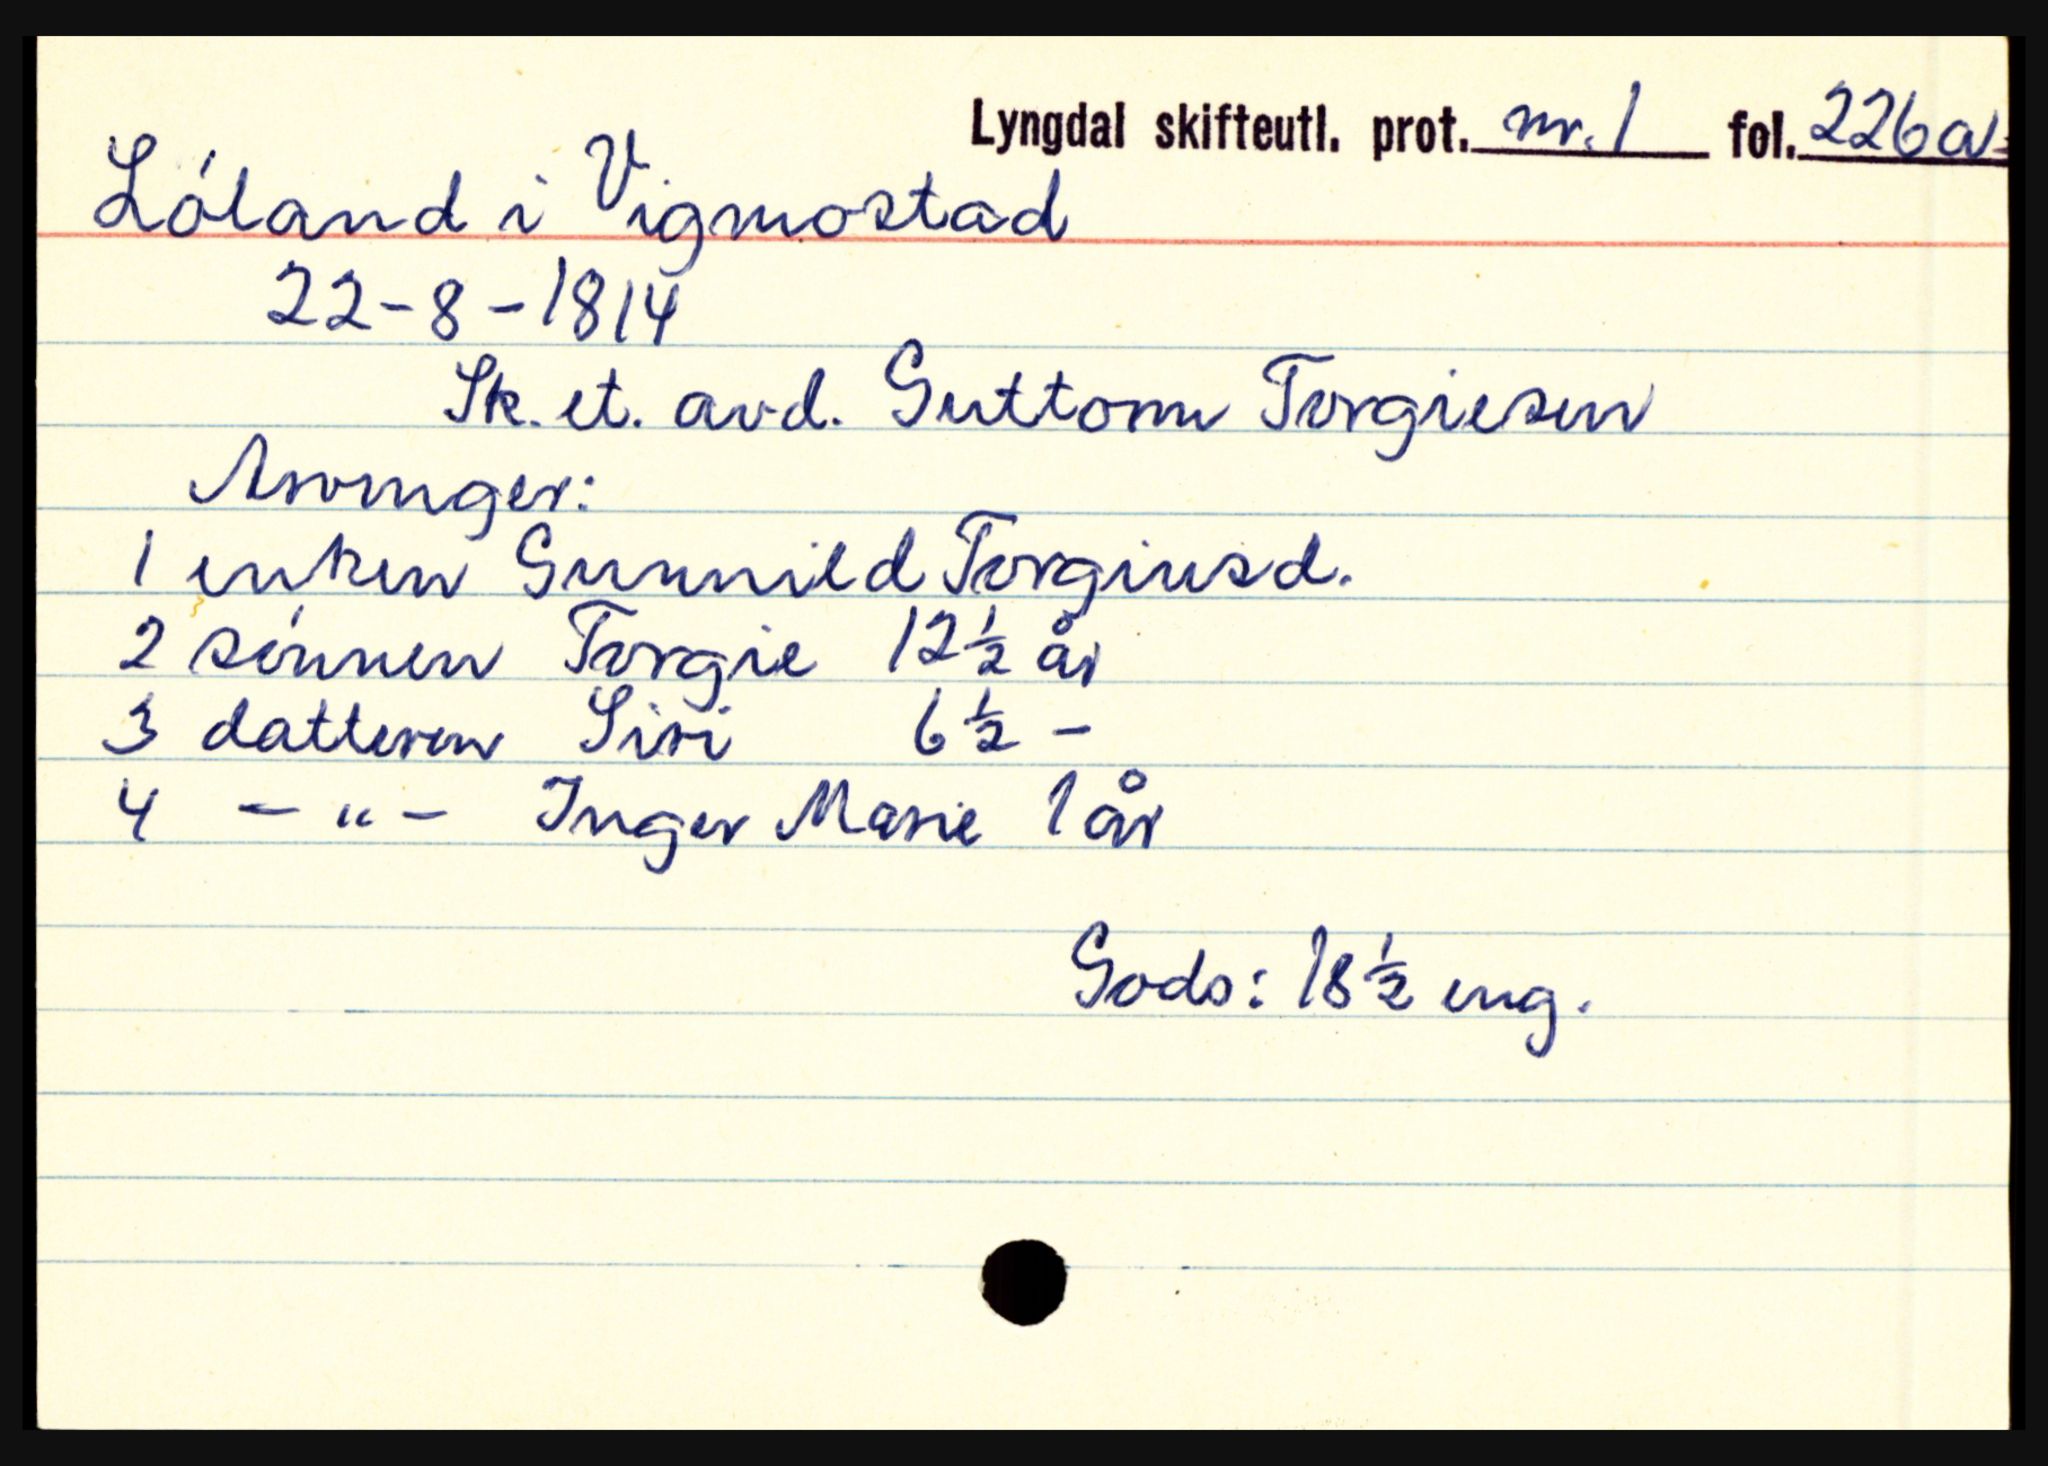 Lyngdal skifteutl. prot. nr. 1 fol. 226a
Lóland i Vigmostad
22-8-1814
Sk. et. avd. Guttorm Torgiesen
Arvinger:
1 enken Gunnild Torgiusd.
2 sónnen Torgie 12½ år
3 datteren Siri 6½ -
4 - " - Inger Marie 1 år
Gods: 18½ eng.